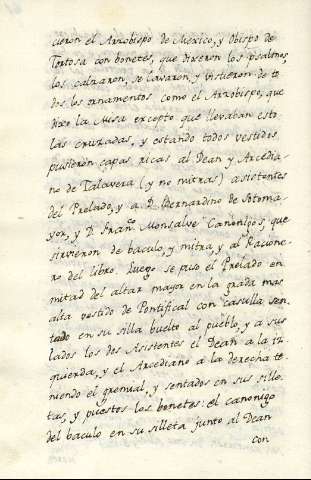 cieron el Arzobispo de Mexico, y Obispo de
Tortosa con bonetes, que dixeron los psalmos,
los calzaron, se lavaron, y vistieron de to
dos los ornamentos como el Arzobispo, que
dixo la Misa excepto que llevaban esto
las cruzadas, y estando todos vestidos
pusieron capas ricas al Dean y Arcedia
no de Talavera (y no mitras) asistentes
del Prelado, y a D. Bernardino de Sotoma
yor, y D. Fran.co Monsalve Canonigos, que
sirvieron de baculo, y mitra, y al Racione
ro del libro. Luego se puso el Prelado en
mitad del altar mayor en la grada mas
alta vestido de Pontifical con casulla sen
tado en su silla buelto al pueblo, y a sus
lados los dos Asistentes el Dean a la iz
quierda, y el Arcediano a la derecha te
niendo el gremial, y sentados en sus sille
tas, y puestos los bonetes: el canonigo
del baculo en su silleta junto al Dean
con